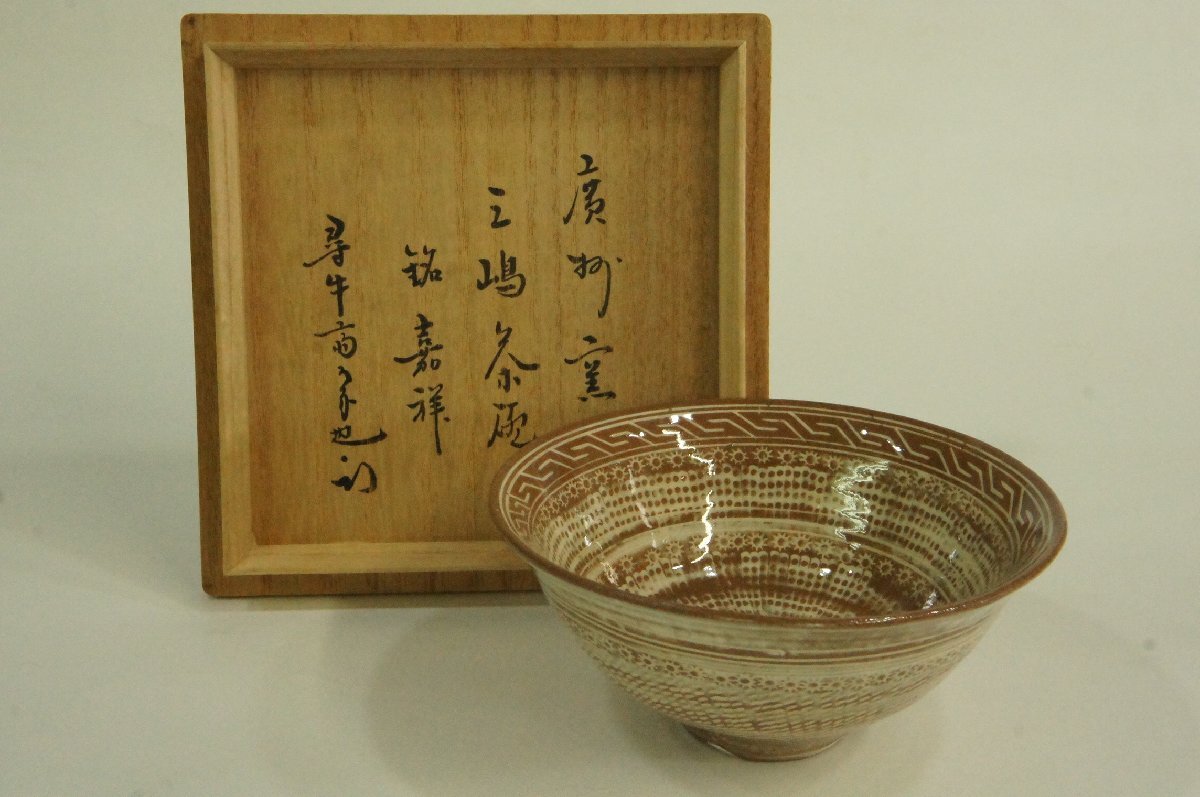 廣州窯
三嶋茶碗
銘 嘉祥
尋牛斎